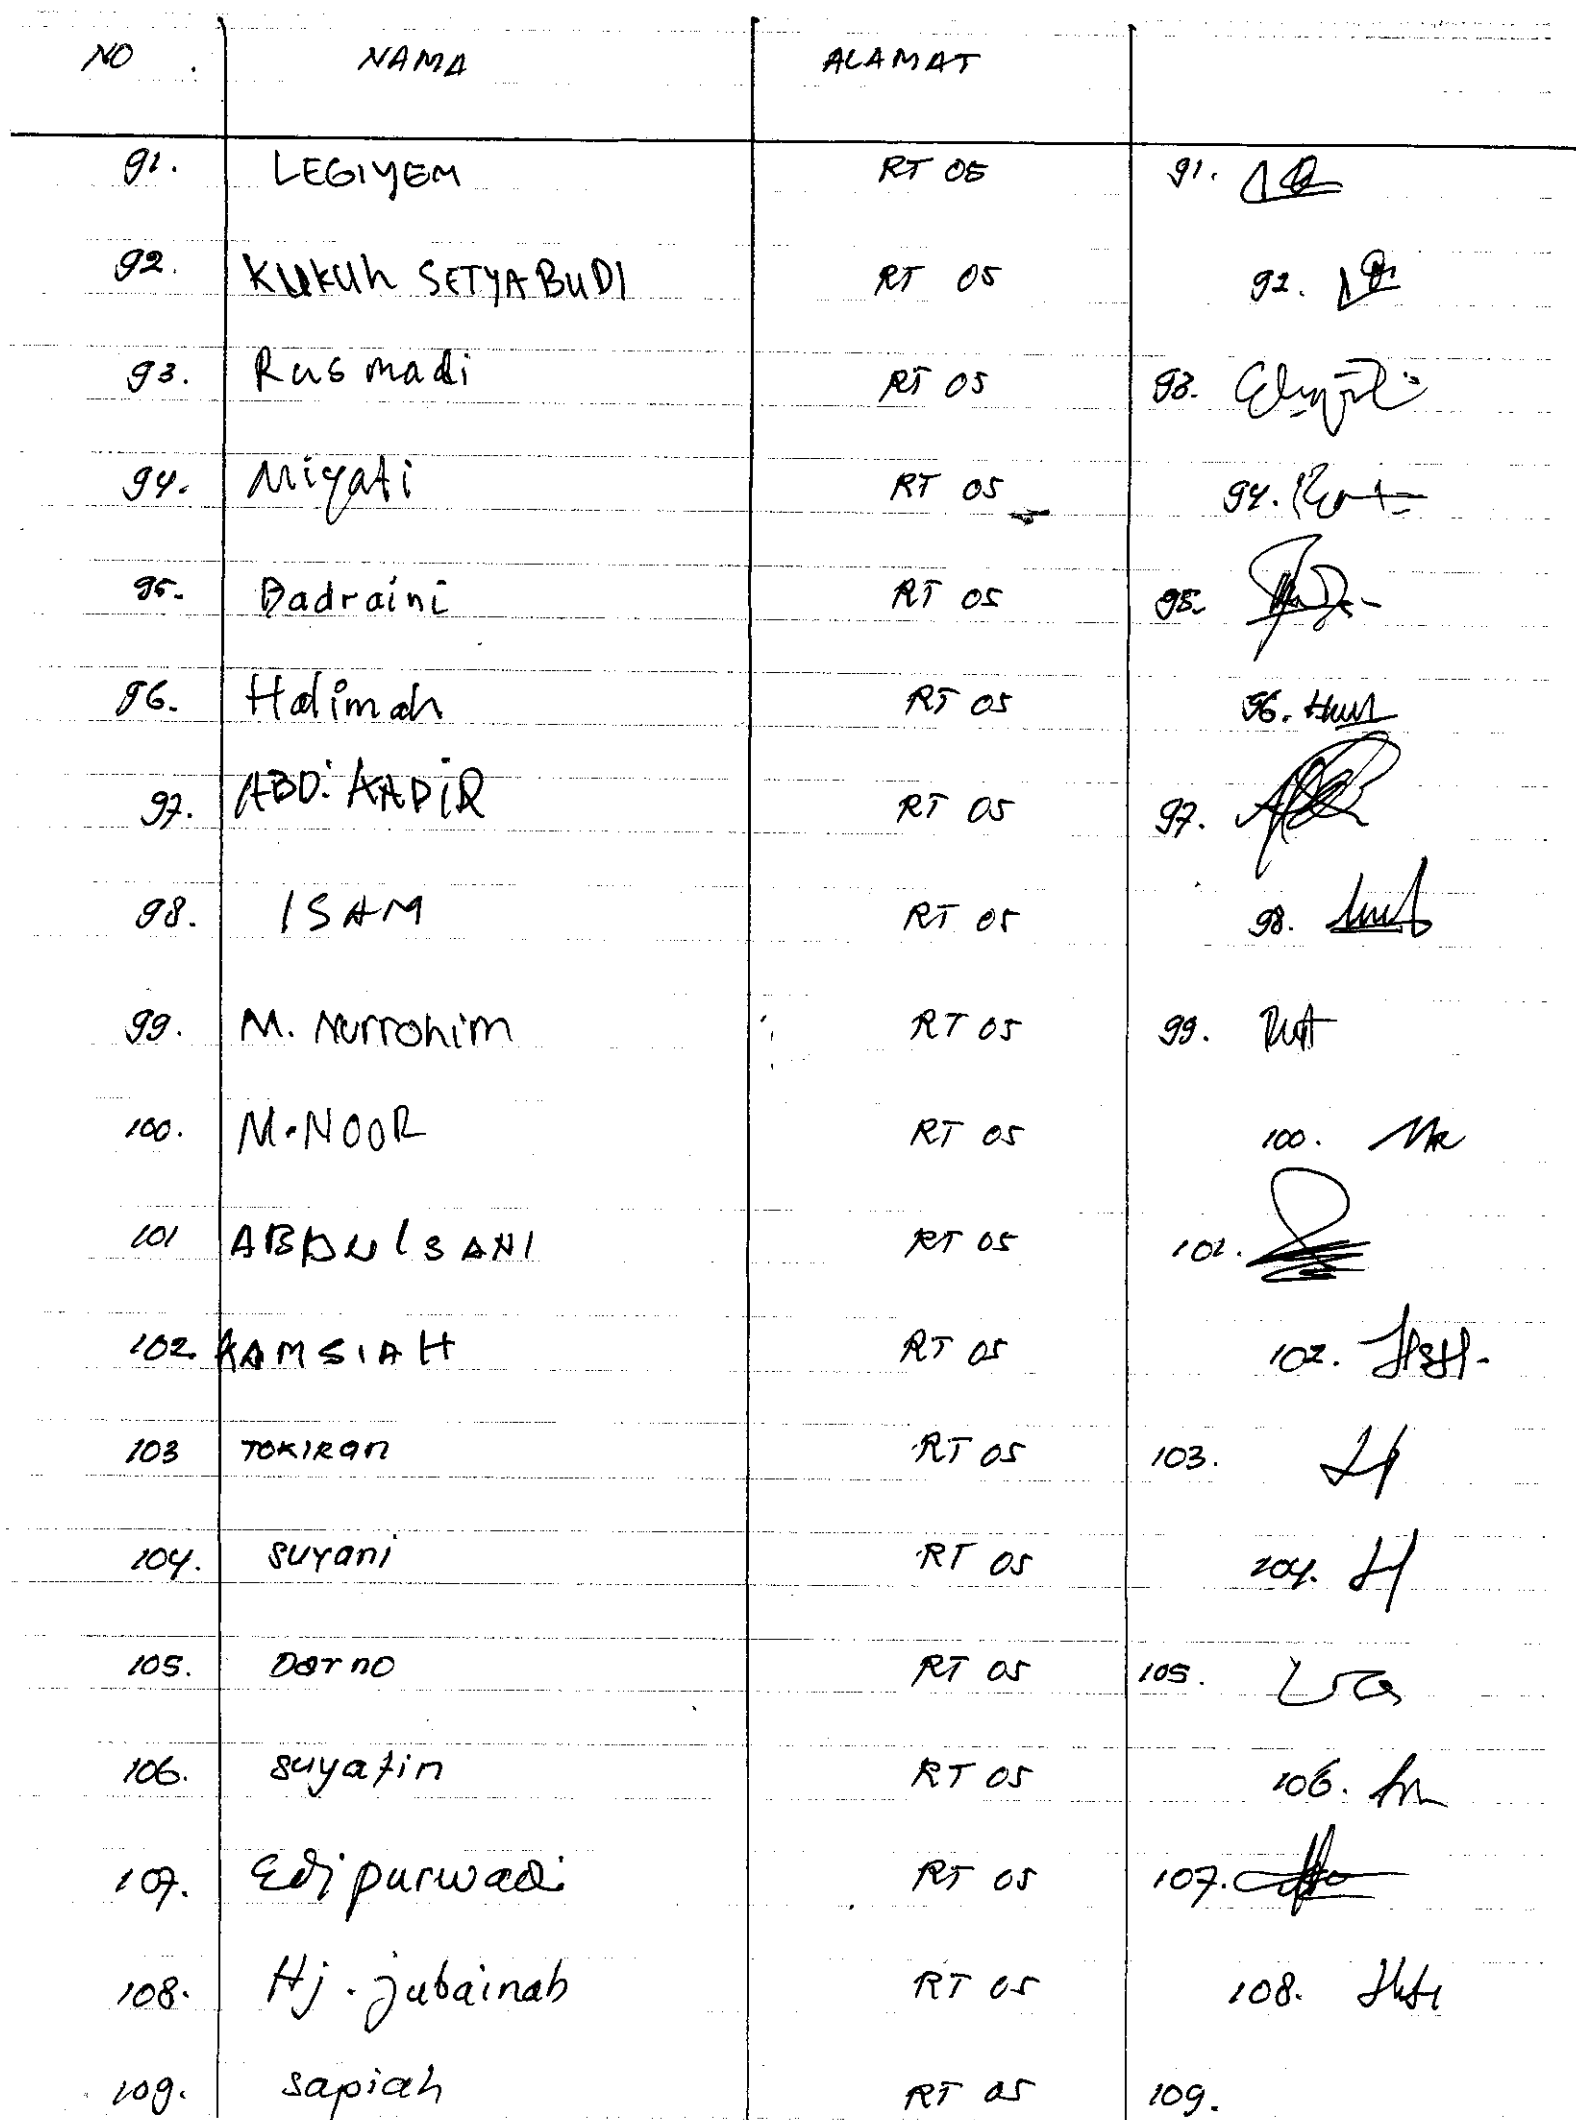 NO . NAMA ALAMAT
91. LEGIYEM RT 05 91.
92. KUKUh SETYABUDI RT 05 92.
93. Rusmadi RT 05 93.
94. Miyati RT 05 94.
95. Badraini RT 05 95.
96. Halimah RT 05 96.
97. ABD. KADIR RT 05 97.
98. ISAM RT 05 98.
99. M. Nurrohim RT 05 99.
100. M. NOOR RT 05 100.
101 ABDUl SANI RT 05 101.
102. KAMSIAH RT 05 102.
103 TOKIRan RT 05 103.
104. suyani RT 05 104.
105. Darno RT 05 105.
106. suyatin RT 05 106.
107. Edi purwadi RT 05 107.
108. Hj. jubainah RT 05 108.
109. sapiah RT 05 109.